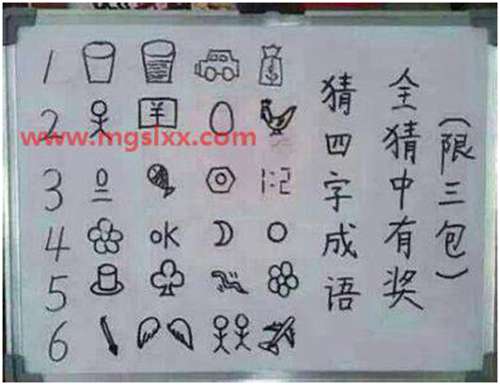 1 $
2 ¥
www.mgslxx.com
3 1:2
4 OK
5
6
猜四字成语
全猜中有奖
(限三包)